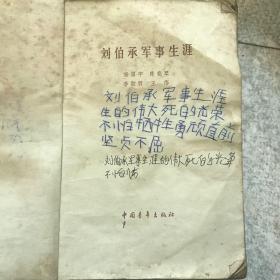 刘伯承军事生涯
刘伯承军事生涯
生的伟大死的光荣
不怕牺牲勇顽直前
坚贞不屈
刘伯承军事生涯的伟死的光荣
不怕牺
中国青年出版社